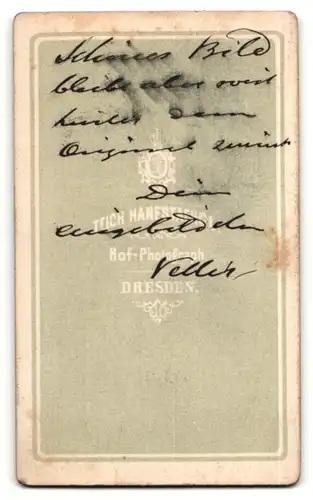 Schönes Bild
bleibt aber weit
hinter dem
Original zurück
Dein
eingebildeter
Vetter
TEICH HANFSTAENGL
Hof-Photograph
DRESDEN.